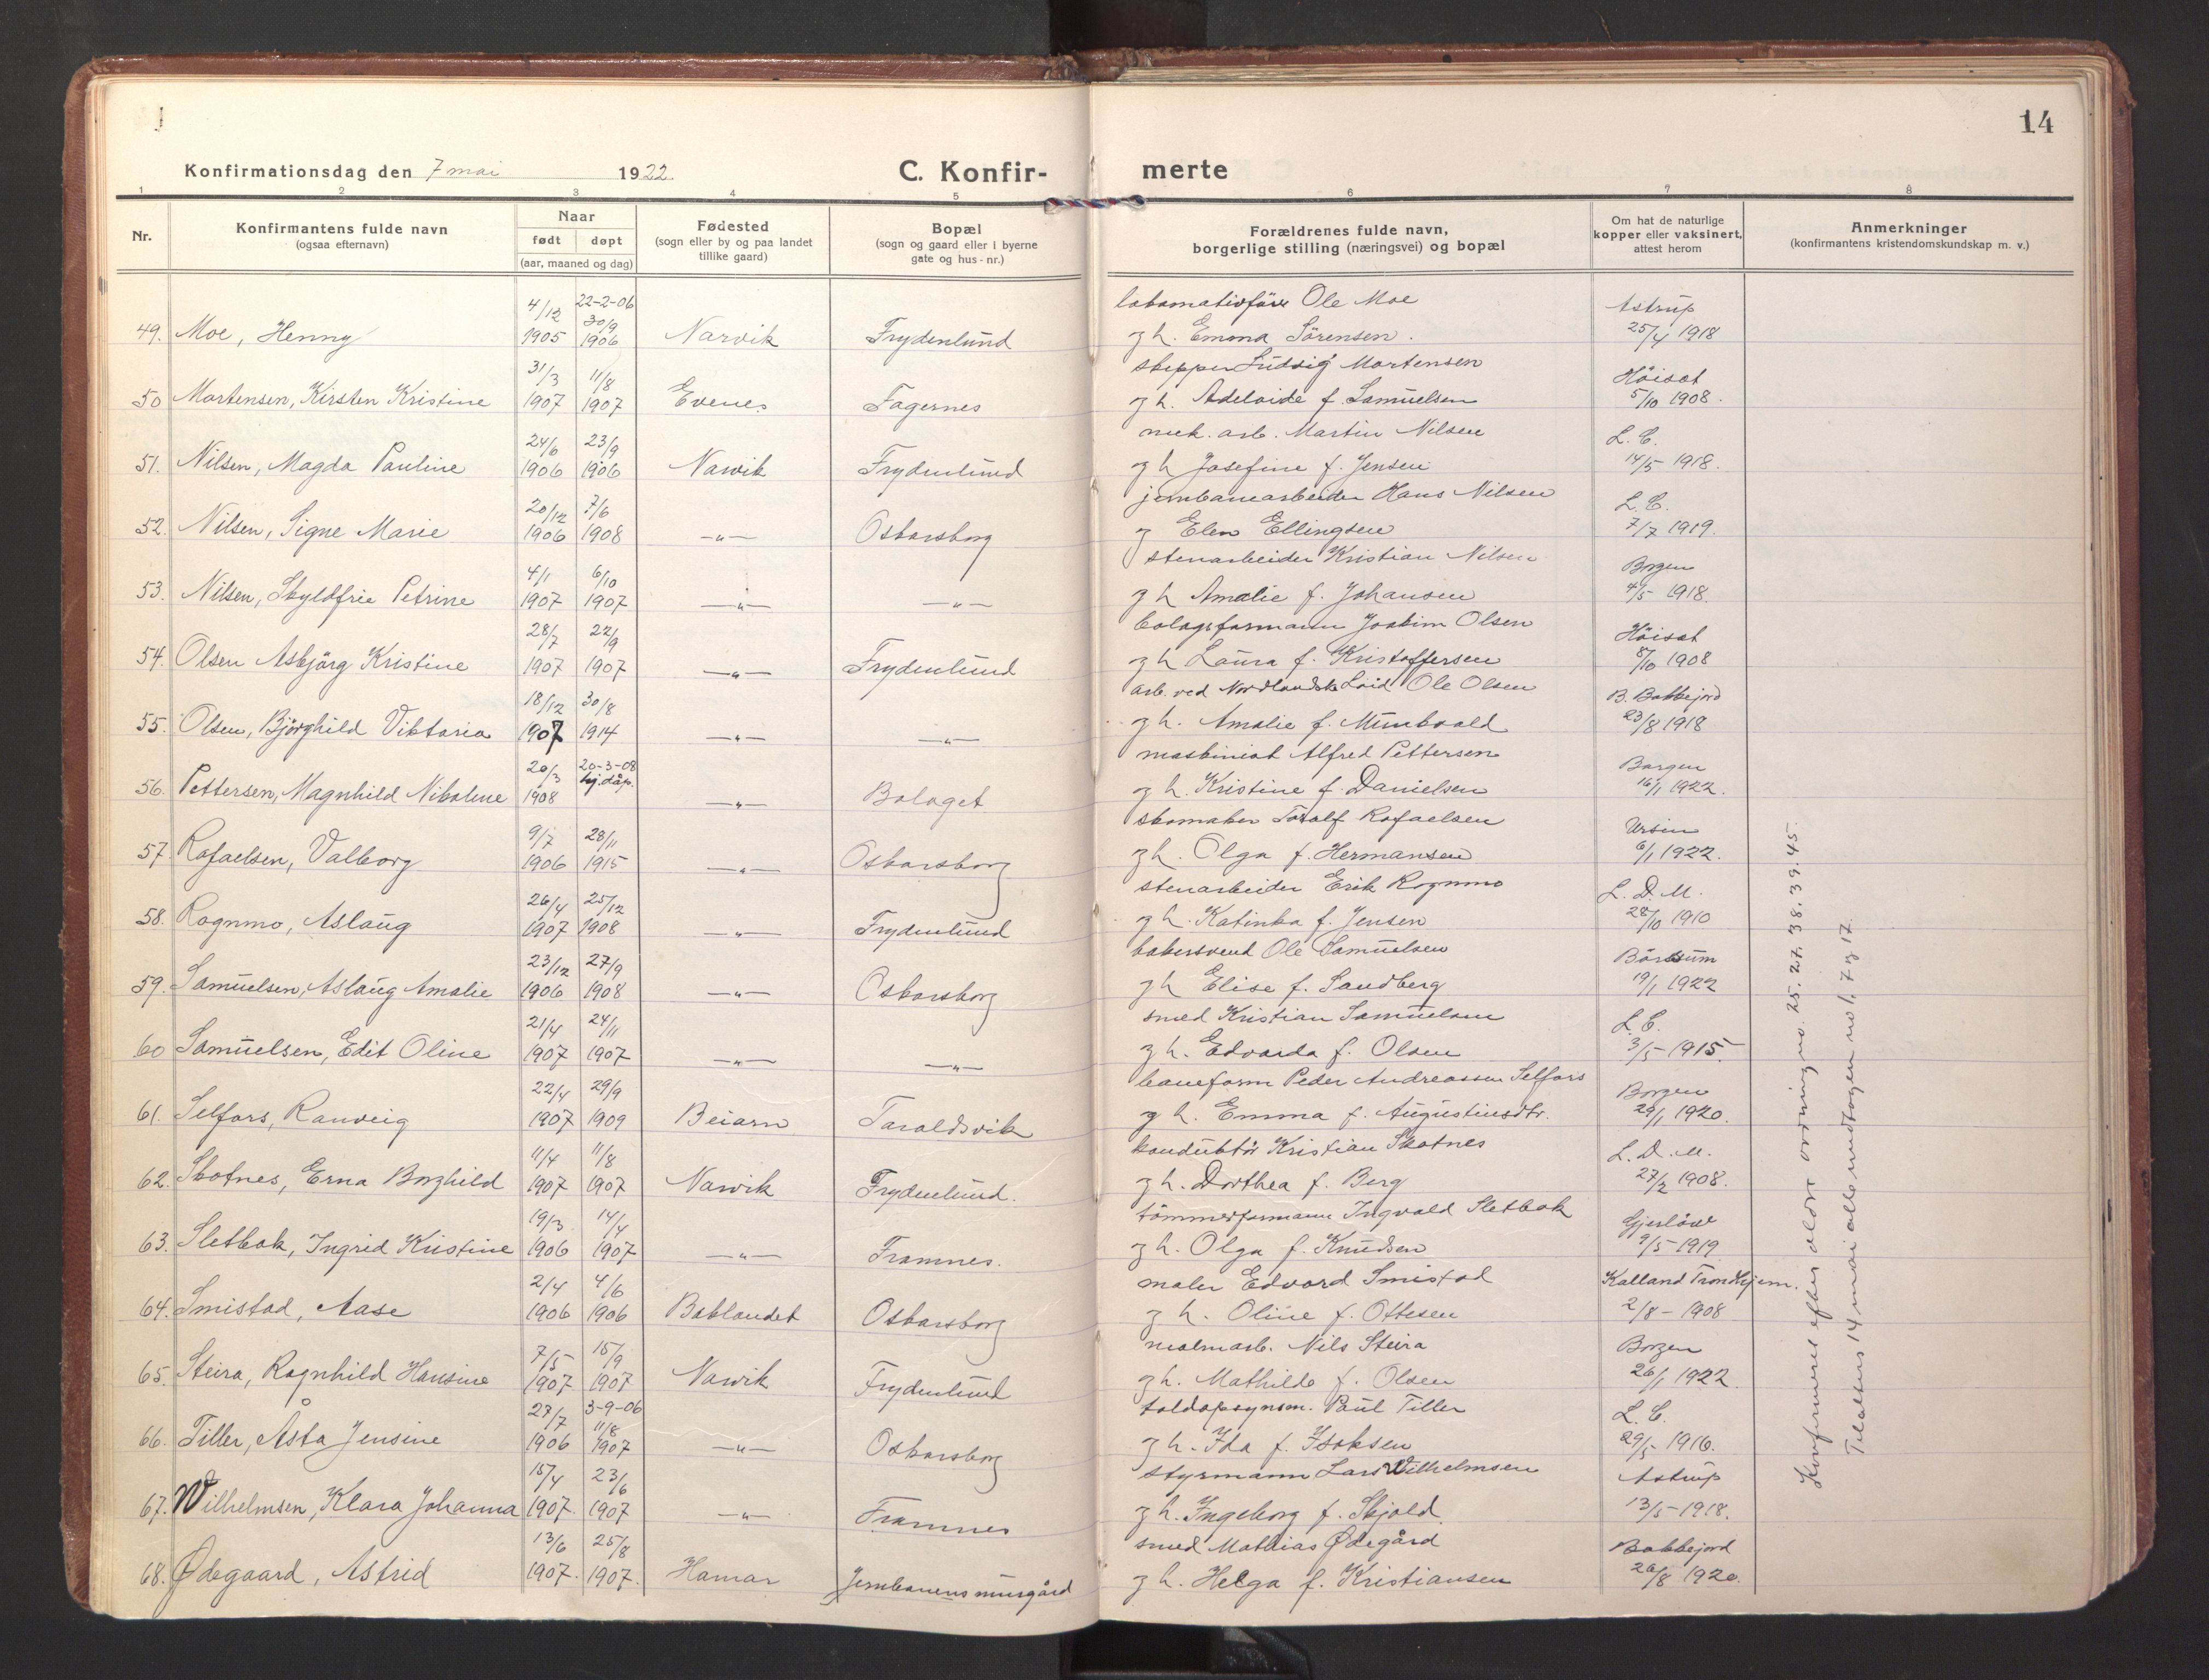 14
Konfirmationsdag den 7 mai 1922. C. Konfir- merte
1 2 3 4 5 6 7 8
Nr. Konfirmantens fulde navn (ogsaa efternavn) Naar født døpt (aar, maaned og dag) Fødested (sogn eller by og paa landet tillike gaard) Bopæl (sogn og gaard eller i byerne gate og hus-nr.) Forældrenes fulde navn, borgerlige stilling (næringsvei) og bopæl Om hat de naturlige kopper eller vaksinert, attest herom Anmerkninger (konfirmantens kristendomskundskap m. v.)
4/12 22-2-06 lokomativför Ole Moe Astrup
49. Moe, Henny 1905 30/9 1906 Narvik Frydenlund g h. Emma Sörensen. 25/4 1918
31/3 11/8 skipper Ludvig Mortensen Höisat
50 Mortensen, Kirsten Kristine 1907 1907 Evenes Fagernes g h. Adelaide f. Samuelsen 5/10 1908.
24/6 23/9 mek. arb. Martin Nilsen L. C.
51. Nilsen, Magda Pauline 1906 1906 Narvik Frydenlund g h Josefine f. Jensen 14/5 1918.
20/12 7/6 jernbanearbeider Hans Nilsen L. C.
52. Nilsen, Signe Marie 1906 1908 -"- Oskarsborg g Elen Ellingsen 7/7 1919.
4/1 6/10 stenarbeider Kristian Nilsen Borgen
53. Nilsen, Skyldfrie Petrine 1907 1907 -"- -"- g h Amalie f. Johansen 4/5 1918.
28/7 22/9 bolagsformann Joakim Olsen Höisat
54. Olsen Asbjörg Kristine 1907 1907 -"- Frydenlund g h Laura f. Kristoffersen 8/10 1908
18/12 30/8 arb. ved Nordlandske Loid Ole Olsen B. Bakkejord
55. Olsen, Björghild Viktoria 1907 1914 -"- -"- g h. Amalie f. Munkvold 23/8 1918
20/3 20-3-08 maskinist Alfred Pettersen Borgen
56. Pettersen, Magnhild Nikoline 1908 hj.dåp. -"- Bolaget g h. Kristine f. Danielsen 16/1 1922.
9/7 28/11 skomaker Toralf Rafaelsen Ursin
57. Rafaelsen, Valborg 1906 1915 -"- Oskarsborg g h. Olga f. Hermansen 6/1 1922.
26/4 25/12 stenarbeider Erik Rognmo L. D. M.
58. Rognmo, Aslaug 1907 1908 -"- Frydenlund g h. Katinka f. Jensen 28/10 1910
23/12 27/9 bakersvend Ole Samuelsen Börsum
59. Samuelsen, Aslaug Amalie 1906 1908 -"- Oskarsborg g h Elise f. Sandberg 19/1 1922
21/4 24/11 smed Kristian Samuelsen L. C.
60 Samuelsen, Edit Oline 1907 1907 -"- -"- g h. Edvarda f. Olsen 3/5 1915.
22/4 29/9 baneform Peder Andreassen Selfors Borgen
61. Selfors, Ranveig 1907 1909 Beiarn Taraldsvik g h. Emma f. Augustinsdtr. 29/1 1920.
11/4 11/8 konduktör Kristian Skotnes L. D. M.
62. Skotnes, Erna Borghild 1907 1907 Narvik Frydenlund. g h. Dorthea f. Berg 27/2 1908.
19/3 14/4 tömmerformann Ingvald Sletbak Gjerlöw
63. Sletbak, Ingrid Kristine 1906 1907 -"- Framnes. g h. Olga f. Knudsen 9/5 1919
2/4 4/6 maler Edvard Smistad Kalland Trondhjem.
64. Smistad, Aase 1906 1906 Baklandet Oskarsborg g h. Oline f. Ottesen 2/8 - 1908
7/5 15/9 malmarb. Nils Steira Borgen
65. Steira, Ragnhild Hansine 1907 1907 Narvik Frydenlund g h. Mathilde f. Olsen 26/1 1922.
27/7 3-9-06 toldopsynsm. Paul Tiller L. C.
66. Tiller, Åsta Jensine 1906 11/8 1907 -"- Oskarsborg g h. Ida f. Isaksen 29/5 1916.
15/4 23/6 styrmann Lars Wilhelmsen Astrup
67. Wilhelmsen, Klara Johanna 1907. 1907 -"- Framnes g h. Ingeborg f. Skjold 13/5-1918.
13/6 25/8 smed Mathias Ødegård Bakkejord
68. Ødegaard, Astrid 1907. 1907. Hamar Jernbanens murgård g h. Helga f. Kristiansen 26/8 1920.
Konfirmeres efter aldre ordning no. 25. 27. 38. 39. 45.
Tilalters 14 mai alle undtagen no 1. 7 og 17.